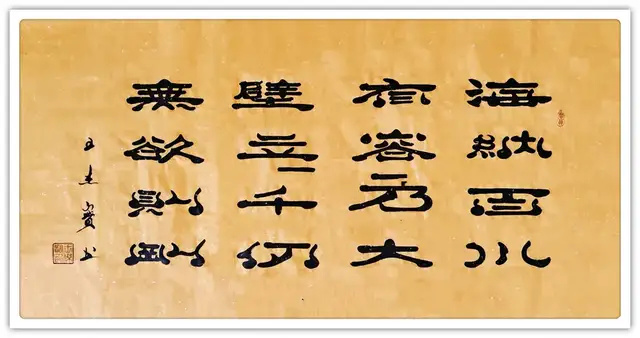 海納百川
有容乃大
壁立千仞
無欲則剛
王杰书